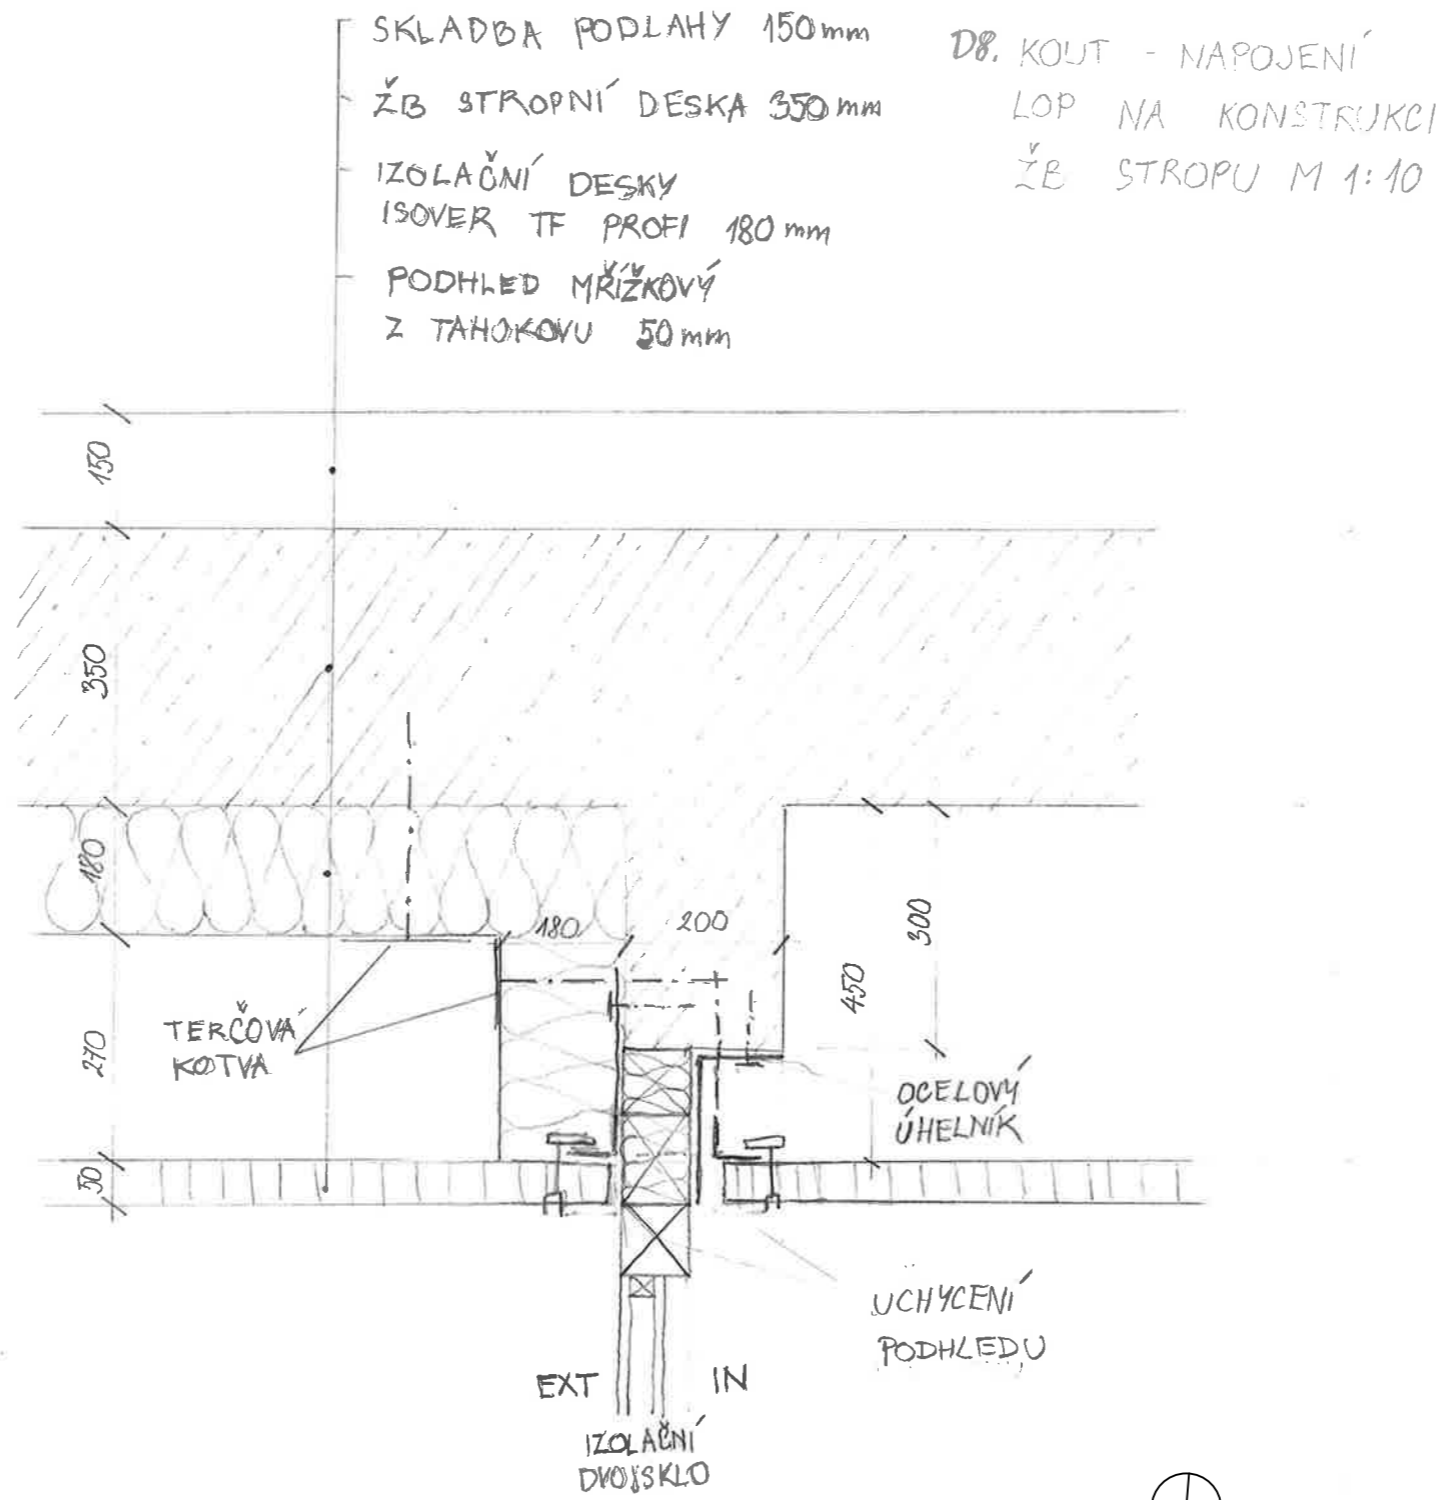 SKLADBA PODLAHY 150mm
ŽB STROPNÍ DESKA 350mm
IZOLAČNÍ DESKY
ISOVER TF PROFI 180mm
PODHLED MŘÍŽKOVÝ
Z TAHOKOVU 50mm
D8. KOUT - NAPOJENÍ
LOP NA KONSTRUKCI
ŽB STROPU M 1:10
150
350
180
270
50
180
200
300
450
TERČOVÁ
KOTVA
OCELOVÝ
ÚHELNÍK
UCHYCENÍ
PODHLEDU
EXT
IN
IZOLAČNÍ
DVOJSKLO